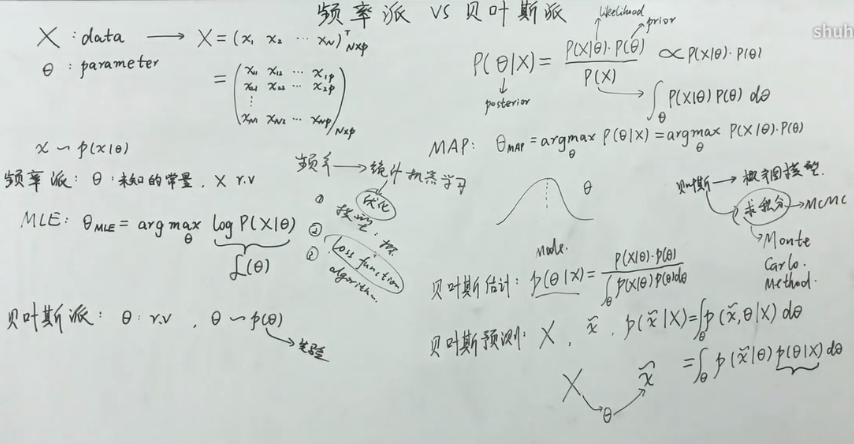 频率派 VS 贝叶斯派
shuh
X : data → X = (x₁ x₂ ⋯ x_N)ᵀ_{N×p}
θ : parameter
= (x₁₁ x₁₂ ⋯ x₁p
x₂₁ x₂₂ ⋯ x₂p
⋮
x_N1 x_N2 ⋯ x_Np)_{N×p}
x ~ p(x|θ)
频率派: θ: 未知的常量, X r.v
MLE: θ_MLE = arg max_θ log P(X|θ)
ℒ(θ)
贝叶斯派: θ: r.v, θ ~ p(θ)
→ 先验
频率 → 统计机器学习
优化
① 模型
②
③
Loss function
algorithm.
likelihood
prior
P(θ|X) = P(X|θ)·P(θ) / P(X) ∝ P(X|θ)·P(θ)
posterior
∫_θ P(X|θ) P(θ) dθ
MAP: θ_MAP = argmax_θ P(θ|X) = argmax_θ P(X|θ)·P(θ)
θ
Mode.
贝叶斯 → 概率图模型.
求积分 → MCMC
Monte
Carlo.
Method.
贝叶斯估计: p(θ|X) = P(X|θ)·p(θ) / ∫_θ p(X|θ) p(θ) dθ
贝叶斯预测: X, x̃, p(x̃|X) = ∫_θ p(x̃,θ|X) dθ
= ∫_θ p(x̃|θ) p(θ|X) dθ
X → θ → x̃